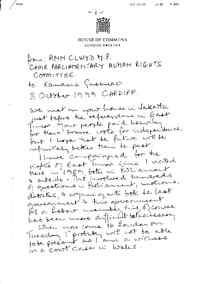 - 2 -
HOUSE OF COMMONS
LONDON SW1A 0AA
From ANN CLWYD M.P.
CHAIR PARLIAMENTARY HUMAN RIGHTS
COMMITTEE
to Xanana Gusmao
8 October 1999 CARDIFF
We met in your house in Jakarta
just before the referendum in East
Timor. Your people paid heavily
for their brave vote for independence
but I hope that the future will be
infinitely better than the past.
I have campaigned for the
rights of East Timor since I visited
there in 1989, both in Parliament
& outside. I've involved hundreds
of questions in Parliament, motions,
debates, & arguing with both the last
government & this government.
As a Labour member, this, of course
has been more difficult
When you come to London on
Tuesday I probably will not be able
to be present as I am a witness
in a court case in Wales.